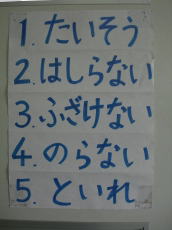 1.たいそう
2.はしらない
3.ふざけない
4.のらない
5.といれ